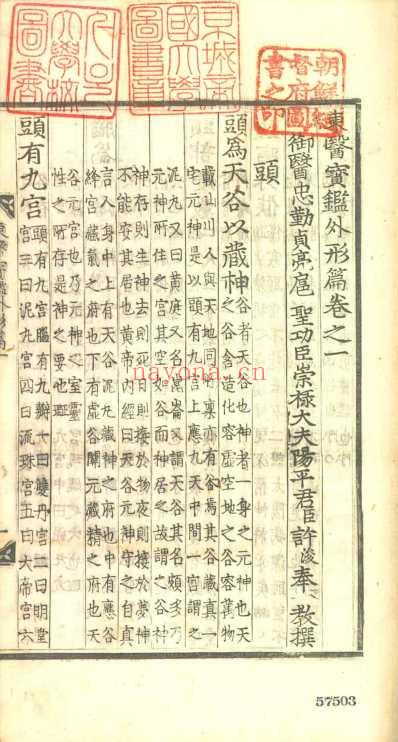 朝鮮總
督府圖
書之印
京城帝
國大學
圖書章
大學校
圖書
東醫寶鑑外形篇卷之一
御醫忠勤貞亮扈 聖功臣崇祿大夫陽平君臣許浚奉 教撰
頭
頭爲天谷以藏神
谷者天谷也神者一身之元神也天
之谷含造化容虛空地之谷容萬物
載山川人與天地同所稟亦有谷焉其谷藏眞一
宅元神是以頭有九宮上應九天中間一宮謂之
泥丸又曰黃庭又名崑崙又謂天谷其名頗多乃
元神所住之宮其空如谷而神居之故謂之谷神
神存則生神去則死日則接於物夜則接於夢神
不能安其居也黃帝內經曰天谷元神守之自眞
言人身中上有天谷泥丸藏神之府也中有應谷
絳宮藏氣之府也下有虛谷關元藏精之府也天
谷元宮也乃元神之室靈
性之所存是神之要也
頭有九宮
頭有九宮腦有九瓣一曰雙丹宮二曰明堂
宮三曰泥丸宮四曰流珠宮五曰大帝宮六
nayona.cn
57503